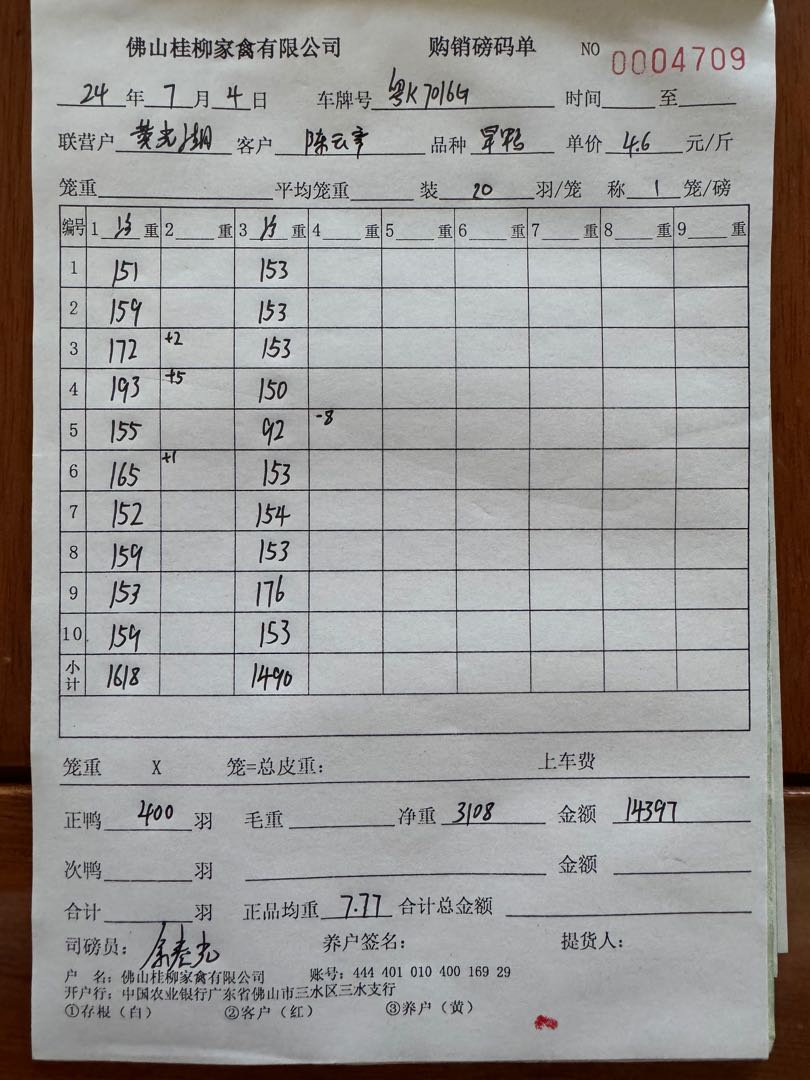 佛山桂柳家禽有限公司 购销磅码单 NO 0004709
24年7月4日 车牌号 粤K7016G 时间 至
联营户 黄光湖 客户 陈云彦 品种 旱鸭 单价 4.6 元/斤
笼重 平均笼重 装 20 羽/笼 称 1 笼/磅
编号 1 重 2 重 3 重 4 重 5 重 6 重 7 重 8 重 9 重
1 151 153
2 159 153
3 172 +2 153
4 193 +5 150
5 155 92 -8
6 165 +1 153
7 152 154
8 159 153
9 153 176
10 159 153
小计 1618 1490
笼重 X 笼=总皮重: 上车费
正鸭 400 羽 毛重 净重 3108 金额 14397
次鸭 羽 金额
合计 羽 正品均重 7.77 合计总金额
司磅员: 养户签名: 提货人:
户 名: 佛山桂柳家禽有限公司 账号: 444 401 010 400 169 29
开户行: 中国农业银行广东省佛山市三水区三水支行
①存根(白) ②客户(红) ③养户(黄)